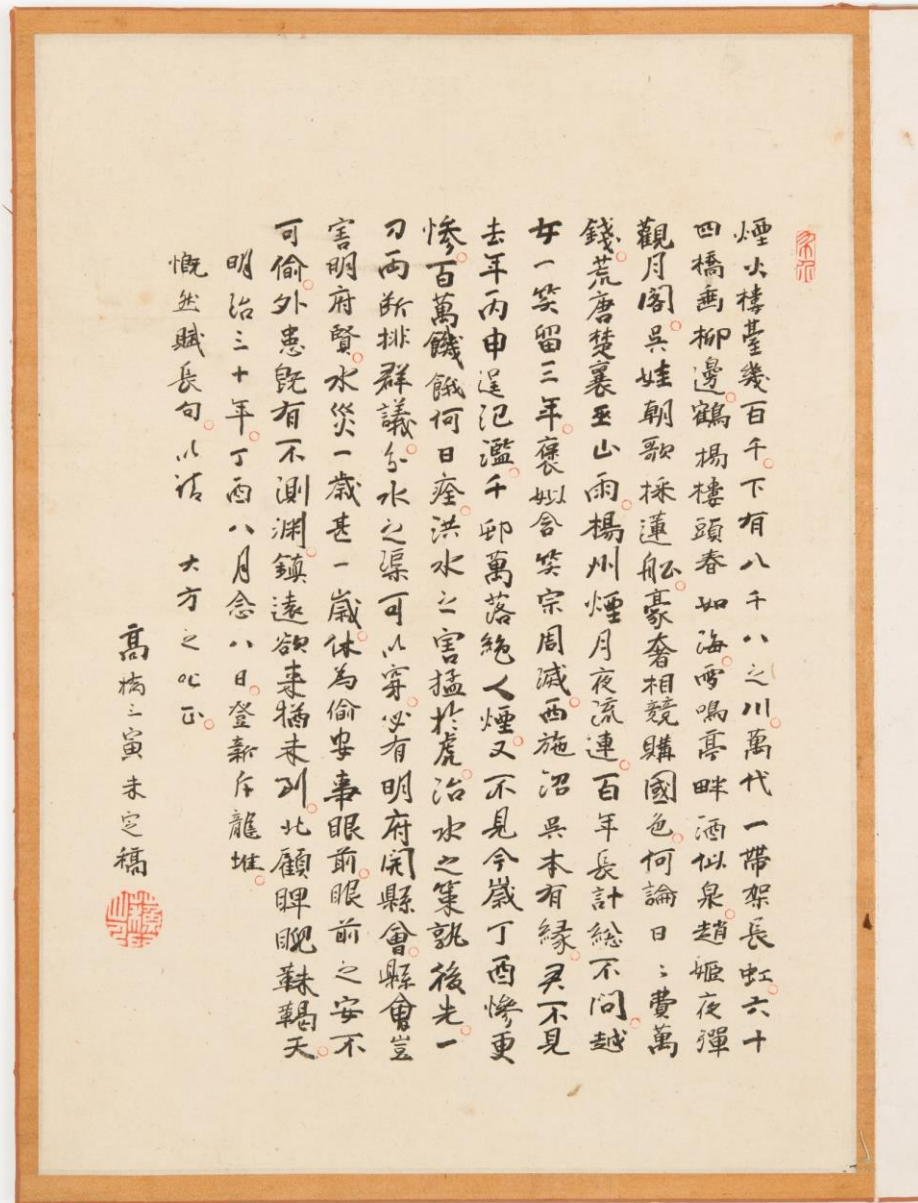 煙火樓臺幾百千。下有八千八之川。萬代一帶架長虹。六十
四橋垂柳邊。鶴楊樓頭春如海。雪鳴亭畔酒似泉。趙姬夜彈
觀月閣。吳娃朝歌採蓮船。豪奢相競購國色。何論日々費萬
錢。荒唐楚襄巫山雨。楊州煙月夜流連。百年長計総不問。越
女一笑留三年。褒姒含笑宗周滅。西施沼吳本有縁。君不見
去年丙申逞氾濫。千邨萬落絶人煙。又不見今歲丁酉慘更
慘。百萬饑餓何日痊。洪水之害猛於虎。治水之策孰後先。一
刀兩断排群議。分水之渠可以穿。必有明府開縣會。縣會豈
害明府賢。水災一歲甚一歲。休為偷安事眼前。眼前之安不
可偷。外患既有不測渊。鎮遠欲来猶未到。北顧睥睨靺鞨天。
明治三十年。丁酉八月念八日。登新斥龍堆。
慨然賦長句。以請 大方之叱正。
高橋三寅未定稿